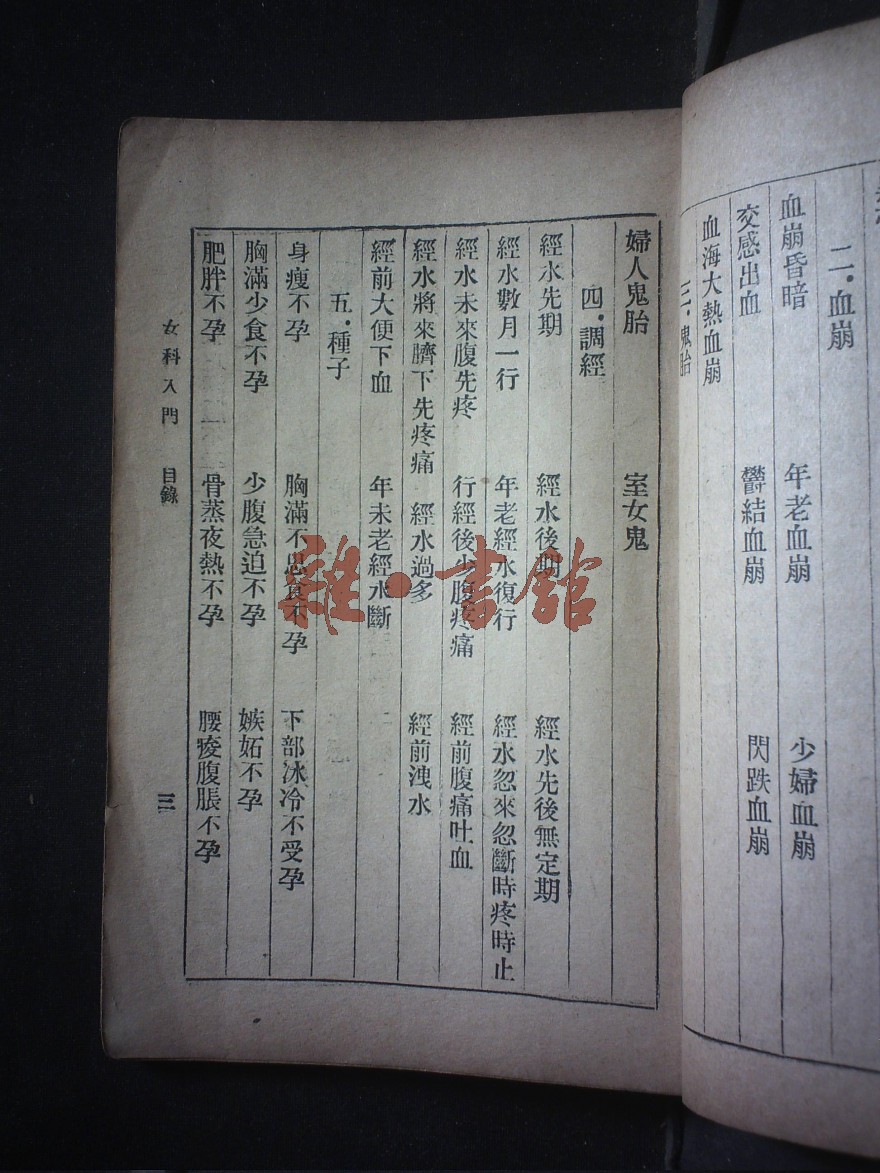 二．血崩
血崩昏暗　年老血崩　少婦血崩
交感出血　鬱結血崩　閃跌血崩
血海大熱血崩
三．鬼胎
婦人鬼胎　室女鬼
四．調經
經水先期　經水後期　經水先後無定期
經水數月一行　年老經水復行　經水忽來忽斷時疼時止
經水未來腹先疼　行經後少腹疼痛　經前腹痛吐血
經水將來臍下先疼痛　經水過多　經前洩水
經前大便下血　年未老經水斷
五．種子
身瘦不孕　胸滿不思食不孕　下部冰冷不受孕
胸滿少食不孕　少腹急迫不孕　嫉妬不孕
肥胖不孕　骨蒸夜熱不孕　腰痠腹脹不孕
女科入門　目錄
三
雜·書館